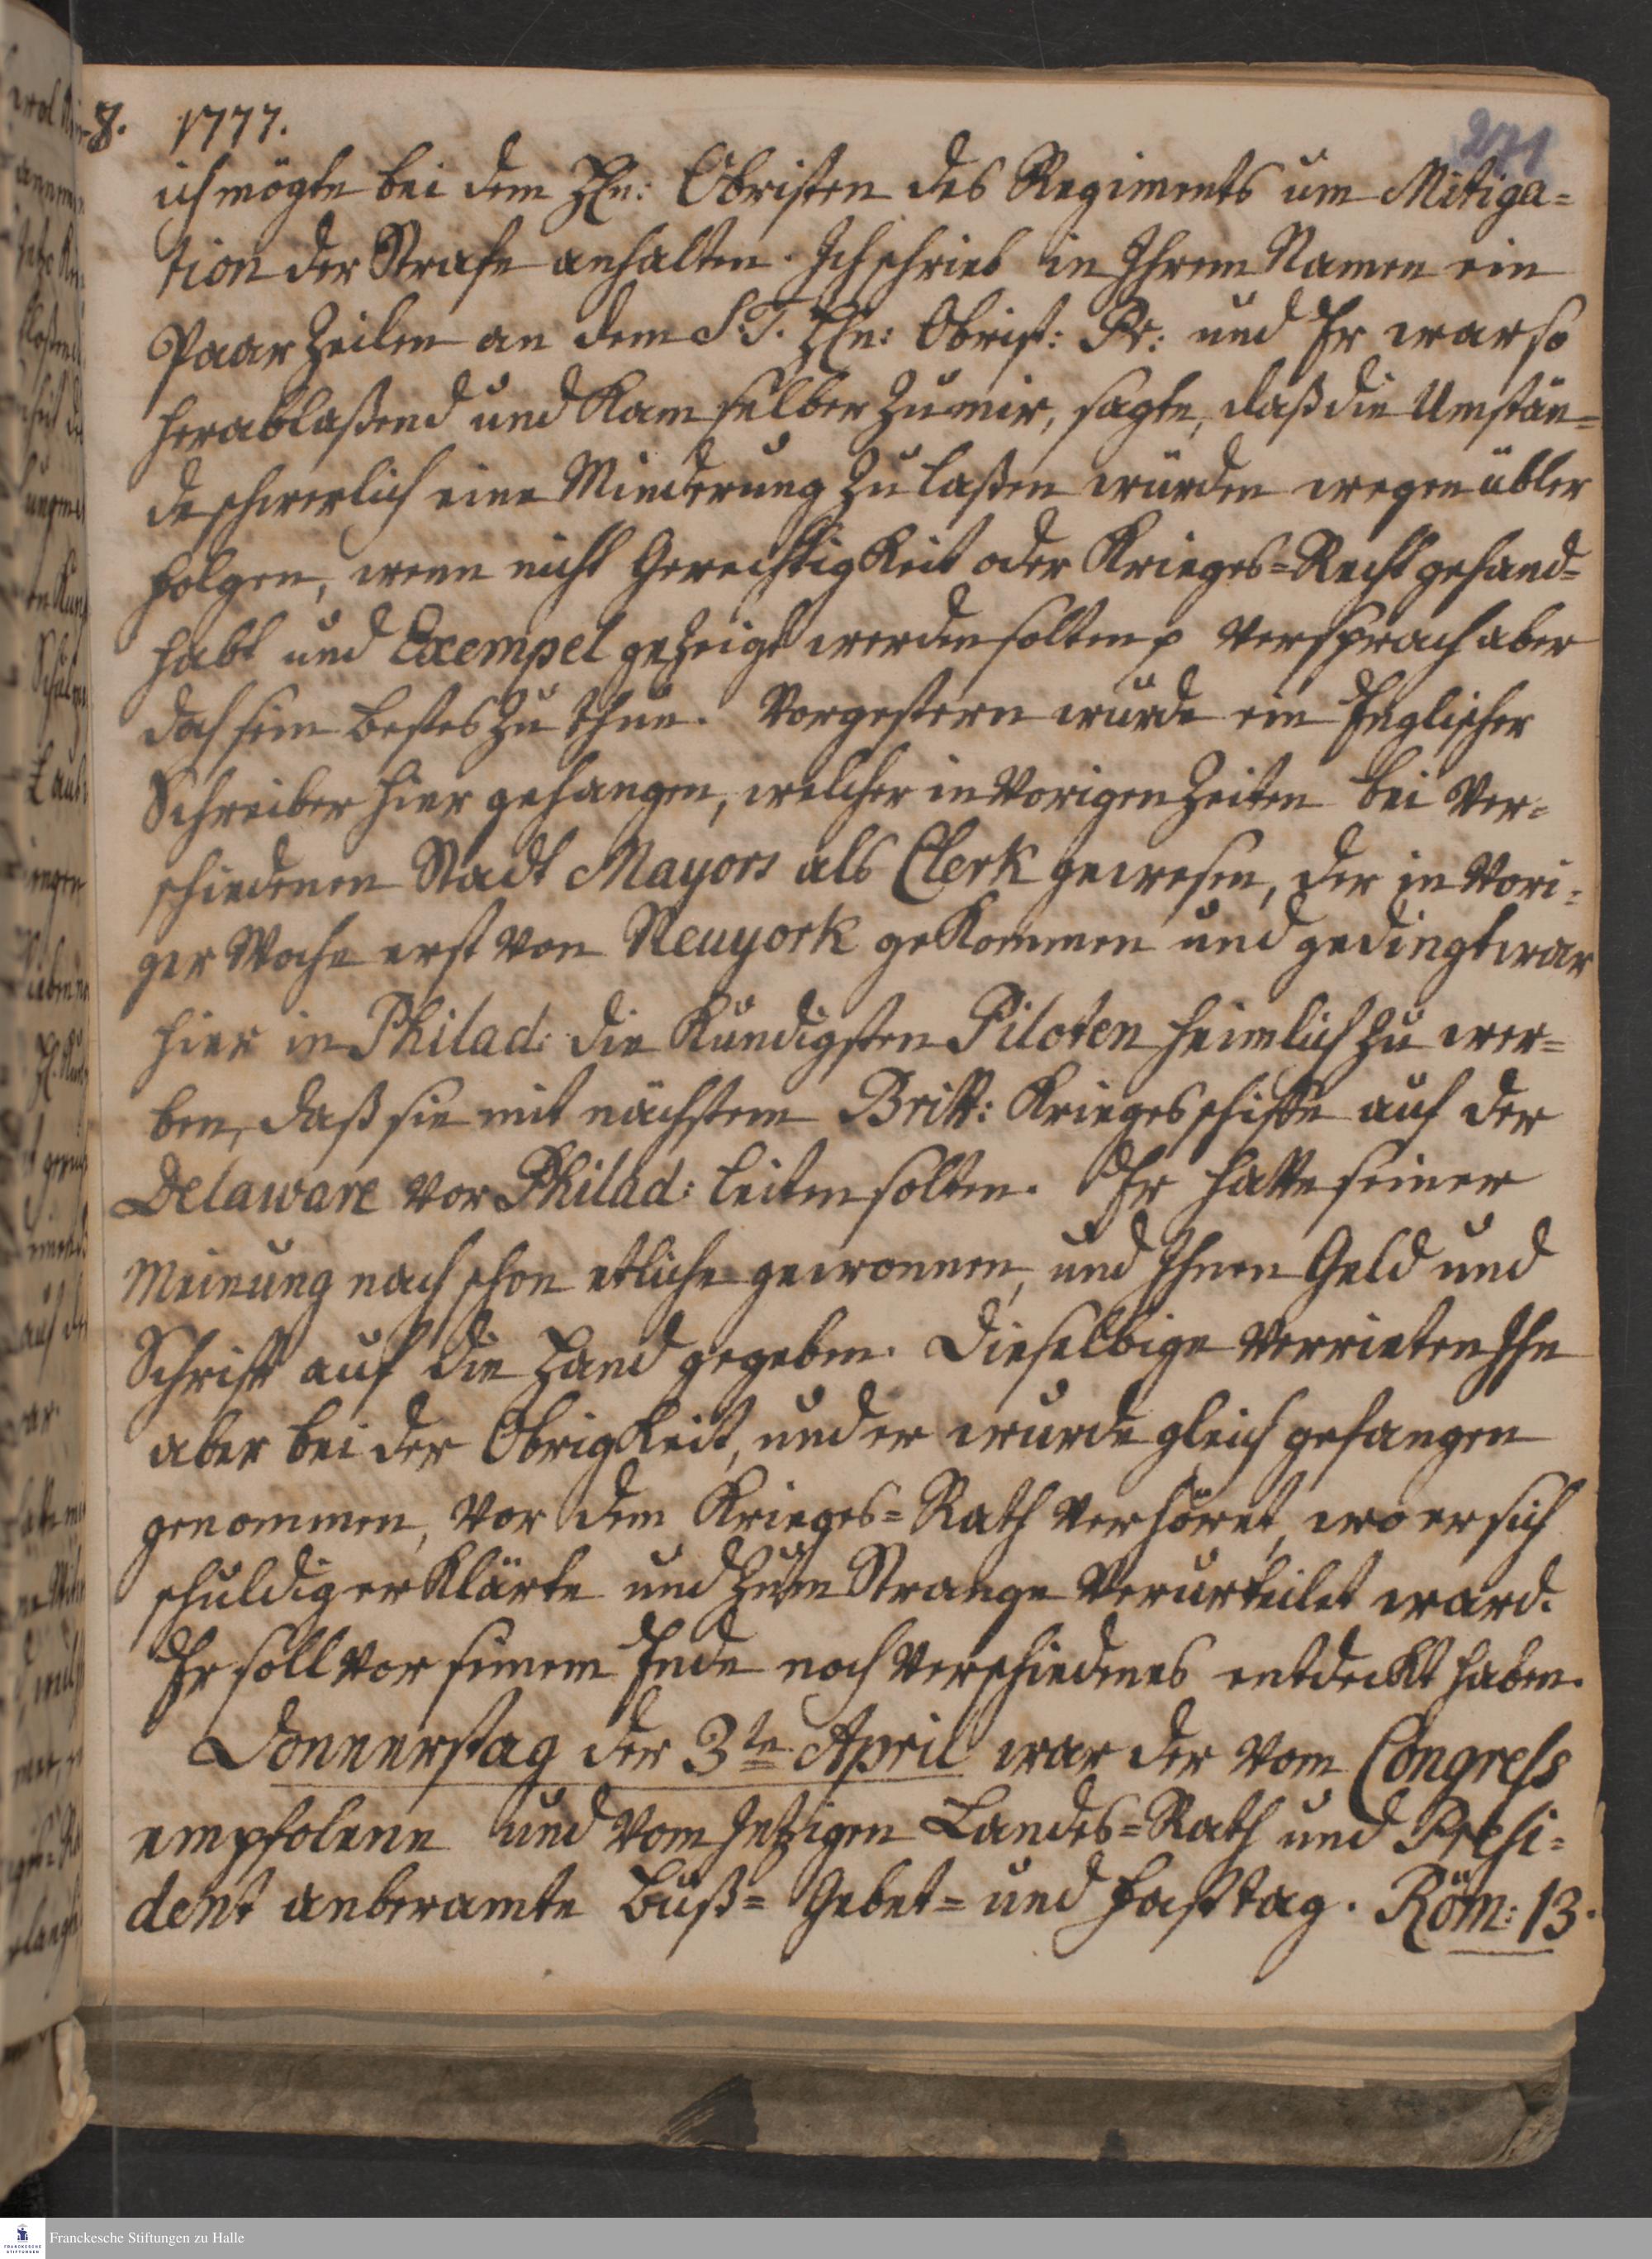 8. 1777.
271
ich mögte bei dem HEn: Obristen des Regiments um Mitiga=
tion der Strafe anhalten. Ich schrieb in Ihrem Namen ein
Paar Zeilen an dem S. T. HEn: Obrist: Pr: und Er war so
herablaßend und Kam selber zu mir, sagte, daß die Umstän=
de schwerlich eine Minderung zu laßen würden wegen übler
Folgen, wenn nicht Gerechtigkeit oder Krieges=Recht gehand=
habt und Exempel gezeigt werden solten p versprach aber
doch sein bestes zu thun. Vorgestern wurde ein Englischer
Schreiber hier gehangen, welcher in vorigen Zeiten bei ver=
schiedenen Stadt Mayors als Clerk gewesen, der in vori=
ger Woche erst von Neuyork gekommen und gedingt war
hier in Philad: die Kundigsten Piloten heimlich zu wer=
ben, daß sie mit nächstem Britt: Kriegesschiffe auf der
Delaware vor Philad: leiten solten. Er hatte seiner
Meinung nach schon etliche gewonnen, und Ihnen Geld und
Schrift auf die Hand gegeben. Dieselbige verrieten Ihn
aber bei der Obrigkeit, und er wurde gleich gefangen
genommen, vor dem Krieges=Rath verhöret, wo er sich
schuldig erklärte und zum Strange verurteilet ward.
Er soll vor seinem Ende noch verschiedenes entdeckt haben.
Donnerstag der 3te April war der vom Congress
empfolene und vom jetzigen Landes=Rath und Presi=
dent anberamte Buß= Gebet= und Fasttag. Röm: 13.
Franckesche Stiftungen zu Halle
FRANCKESCHE
STIFTUNGEN